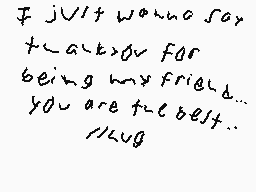 I just wanna say
thankyou for
being my friend...
you are the best..
//hug